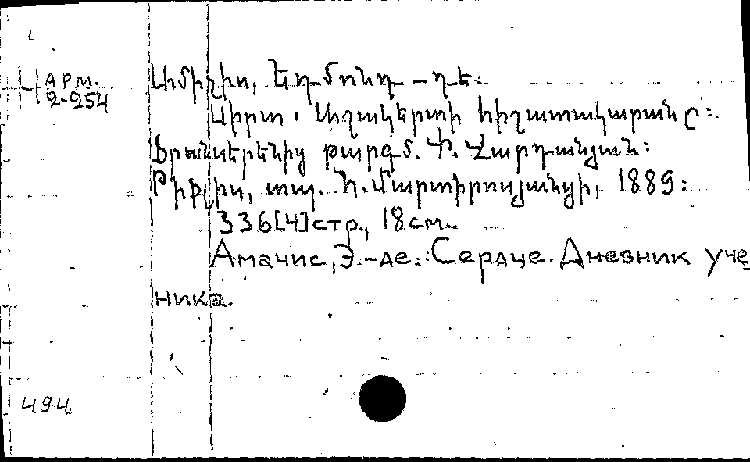 АРМ.
2-254
Ամիչիս, Եդմոնդ-դե:
Սիրտ. Աշակերտի հիշատակարանը:
Ֆրանսերենից թարգմ. Փ. Վարդանյան:
Թիֆլիս, տպ. Ն. Մարտիրոսյանցի, 1889:
336[4]стр., 18см.
Амачис, Э.-де. Сердце. Дневник уче
ника.
494